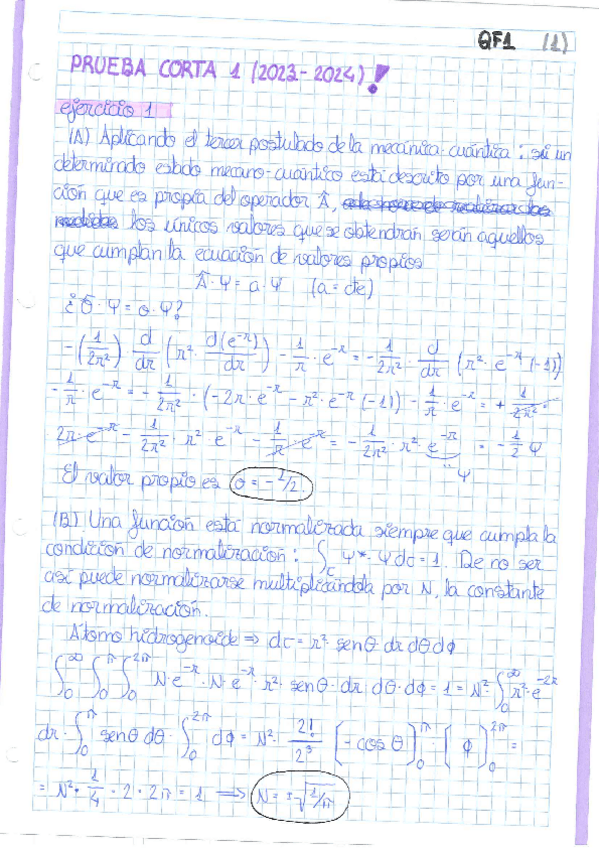 QF1 (1)
PRUEBA CORTA 1 (2023-2024)!
ejercicio 1
(A) Aplicando el tercer postulado de la mecánica-cuántica: si un
determinado estado mecano-cuántico está descrito por una fun-
ción que es propia del operador Â,
los únicos valores que se obtendrán serán aquellos
que cumplan la ecuación de valores propios
Â·Ψ = a·Ψ (a = cte)
¿Ô·Ψ = o·Ψ?
-(1/2r²) d/dr (r²· d(e^-r)/dr) - 1/r · e^-r = - 1/2r² · d/dr (r²· e^-r (-1))
- 1/r · e^-r = - 1/2r² · (-2r·e^-r - r²·e^-r (-1)) - 1/r · e^-r = + 1/2r² ·
2r·e^-r - 1/2r² · r² · e^-r - 1/r · e^-r = - 1/2r² · r² e^-r = - 1/2 Ψ
Ψ
El valor propio es o = -1/2.
(B) Una función está normalizada siempre que cumpla la
condición de normalización: ∫c Ψ*·Ψ dτ = 1. De no ser
así puede normalizarse multiplicándola por N, la constante
de normalización.
Átomo hidrogenoide ⇒ dτ = r² · senθ dr dθ dϕ
∫₀^∞ ∫₀^π ∫₀^2π N·e^-r · N·e^-r · r² · senθ · dr dθ · dϕ = 1 = N² · ∫₀^∞ r²·e^-2r
dr · ∫₀^π senθ dθ · ∫₀^2π dϕ = N² · 2!/2³ [-cos θ]₀^π · [ϕ]₀^2π =
= N² · 1/4 · 2 · 2π = 1 ⟶ N = ±√(1/π)